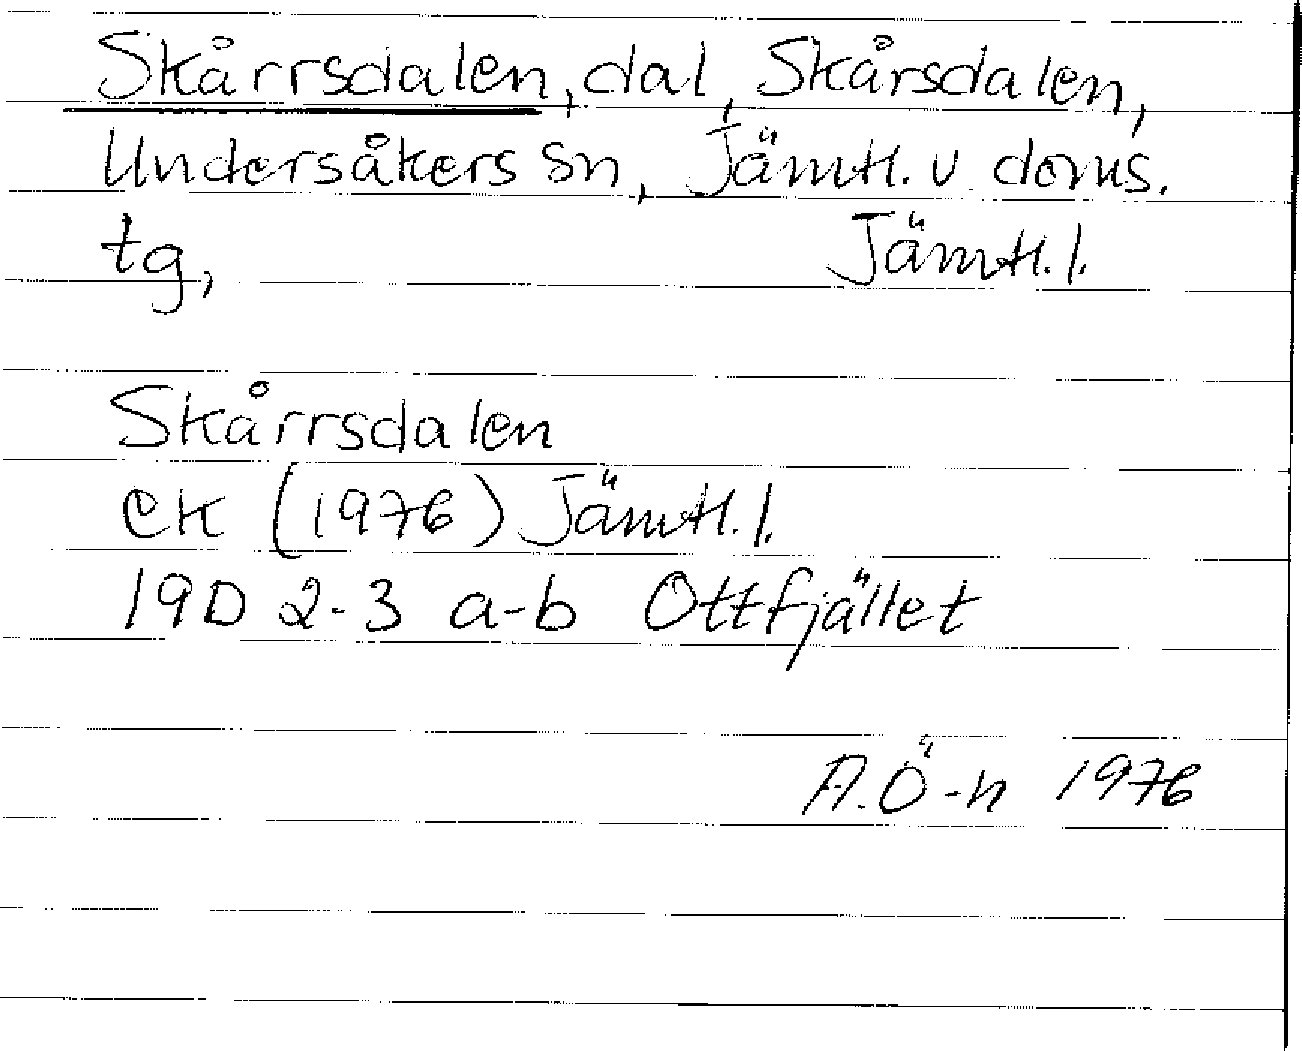 Skårrsdalen, dal, Skårsdalen,
Undersåkers sn, Jämtl. v doms.
tg, Jämtl. l.
Skårrsdalen
EK (1976) Jämtl. l.
19D 2-3 a-b Ottfjället
A.Ö-n 1976